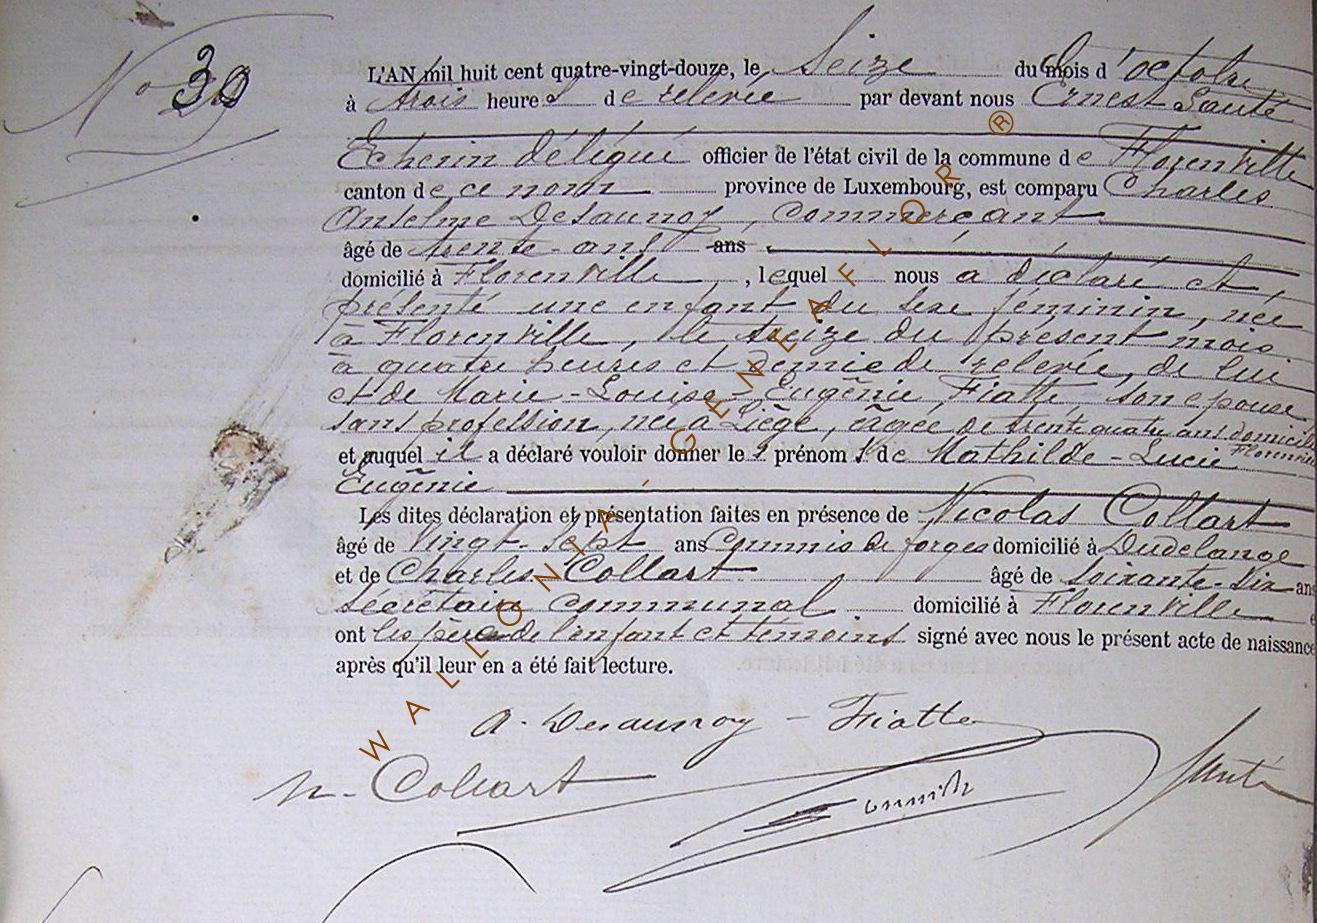 No 39
L'AN mil huit cent quatre-vingt-douze, le Seize du mois d'octobre
à trois heures de relevée par devant nous Ernest Santé
Echevin délégué officier de l'état civil de la commune de Florenville
canton de ce nom province de Luxembourg, est comparu Charles
Anselme Desaunoy, commerçant
âgé de trente-ans ans
domicilié à Florenville, lequel nous a déclaré et,
présenté une enfant du sexe féminin, née
à Florenville, le treize du présent mois
à quatre heures et demie de relevée, de lui
et de Marie-Louise-Eugénie Fiatte, son epouse
sans profession, née à Liège, âgée de trente quatre ans domicilié
Florenville
et auquel il a déclaré vouloir donner les prénoms de Mathilde-Lucie
Eugénie
Les dites déclaration et présentation faites en présence de Nicolas Collart
âgé de Vingt-Sept ans Commis de forges domicilié à Dudelange
et de Charles Collart âgé de Soixante-Six ans
Sécrétaire communal domicilié à Florenville e
ont les père de l'enfant et témoins signé avec nous le présent acte de naissance
après qu'il leur en a été fait lecture.
A. Desaunoy-Fiatte
N. Collart
Santé
WALLONIA' GENEAFLOR ®